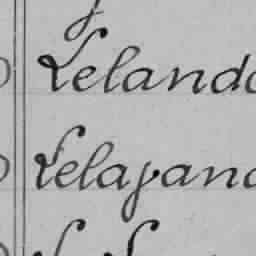 Lelando
Lelapano